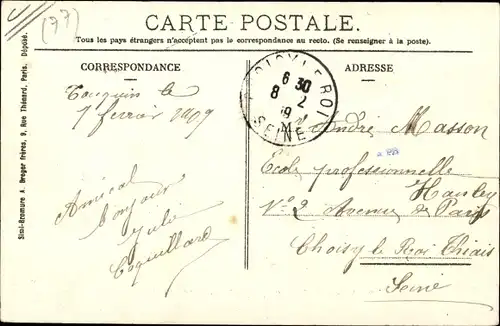 (77)
CARTE POSTALE.
Tous les pays étrangers n'acceptent pas la correspondance au recto. (Se renseigner à la poste.)
CORRESPONDANCE
ADRESSE
Simili-Bromure A. Breger frères, 9, Rue Thénard, Paris. Déposé.
Touquin le
7 février 1909
Amical
bonjour
Julie
Coquillard
CHOISY-LE-ROI
6 30
8 2
SEINE
M. André Masson
Ecole professionnelle
Nº 2 Avenue de Paris
Choisy le Roi Thiais
Seine